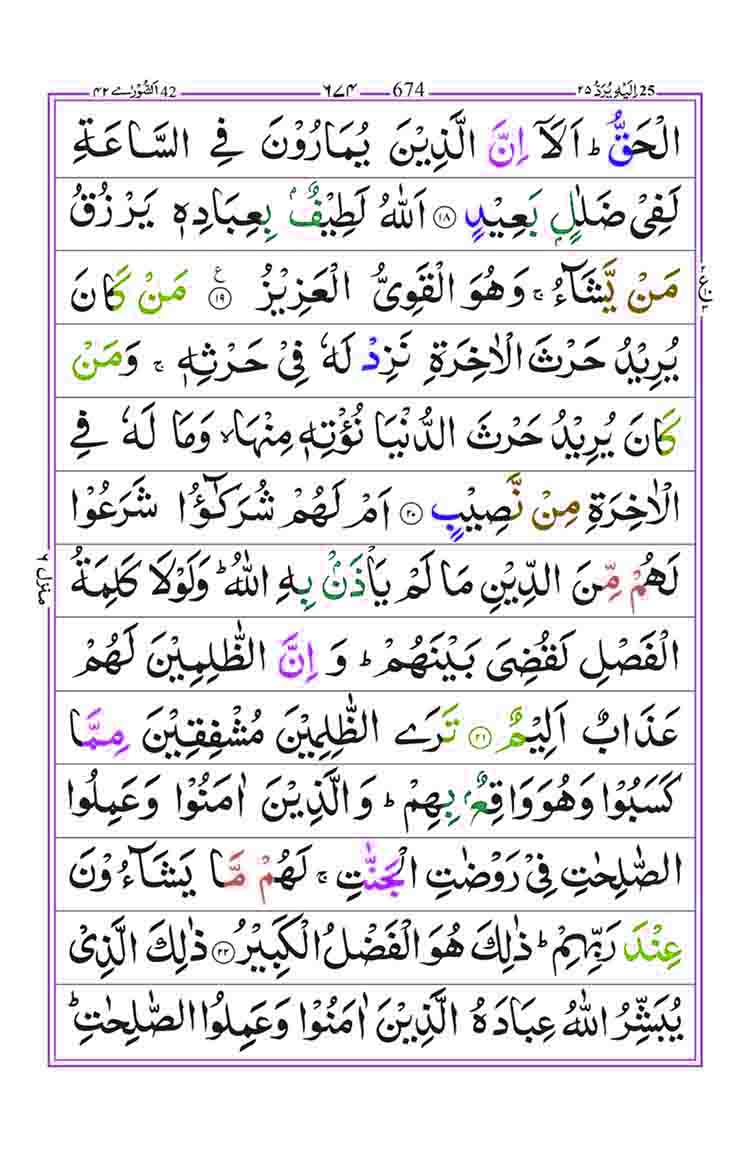 اِلَيْهِ يُرَدُّ ۲۵ 25 674 ۶۷۴ اَلشُّوْرٰے ۴۲ 42
الْحَقُّ ؕ اَلَاۤ اِنَّ الَّذِيْنَ يُمَارُوْنَ فِے السَّاعَةِ
لَفِىْ ضَلٰلٍۭ بَعِيْدٍ ۝۱۸ اَللّٰهُ لَطِيْفٌۢ بِعِبَادِهٖ يَرْزُقُ
مَنْ يَّشَآءُ ۚ وَهُوَ الْقَوِىُّ الْعَزِيْزُ ۝۱۹ ع مَنْ كَانَ
يُرِيْدُ حَرْثَ الْاٰخِرَةِ نَزِدْ لَهٗ فِىْ حَرْثِهٖ ۚ وَمَنْ
كَانَ يُرِيْدُ حَرْثَ الدُّنْيَا نُؤْتِهٖ مِنْهَا ۙ وَمَا لَهٗ فِے
الْاٰخِرَةِ مِنْ نَّصِيْبٍ ۝۲۰ اَمْ لَهُمْ شُرَكٰٓؤُا شَرَعُوْا
لَهُمْ مِّنَ الدِّيْنِ مَا لَمْ يَاْذَنْۢ بِهِ اللّٰهُ ؕ وَلَوْلَا كَلِمَةُ
الْفَصْلِ لَقُضِىَ بَيْنَهُمْ ؕ وَ اِنَّ الظّٰلِمِيْنَ لَهُمْ
عَذَابٌ اَلِيْمٌ ۝۲۱ تَرَے الظّٰلِمِيْنَ مُشْفِقِيْنَ مِمَّا
كَسَبُوْا وَهُوَ وَاقِعٌۢ بِهِمْ ؕ وَالَّذِيْنَ اٰمَنُوْا وَعَمِلُوا
الصّٰلِحٰتِ فِىْ رَوْضٰتِ الْجَنّٰتِ ۚ لَهُمْ مَّا يَشَآءُوْنَ
عِنْدَ رَبِّهِمْ ؕ ذٰلِكَ هُوَ الْفَضْلُ الْكَبِيْرُ ۝۲۲ ذٰلِكَ الَّذِىْ
يُبَشِّرُ اللّٰهُ عِبَادَهُ الَّذِيْنَ اٰمَنُوْا وَعَمِلُوا الصّٰلِحٰتِ ؕ
منزل ۶